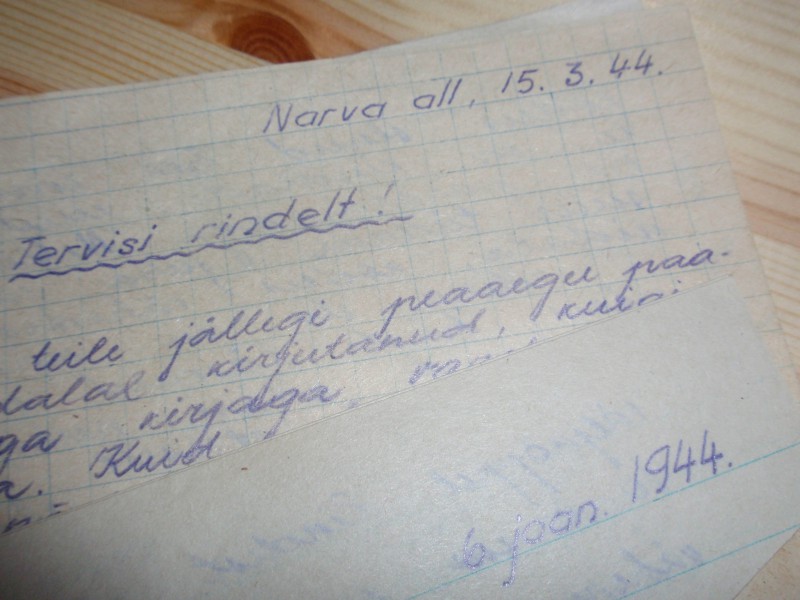 Narva all, 15. 3. 44.
Tervisi rindelt!
teile jällegi peaaegu paa-
dalal kirjutanud, kuigi
ga kirjaga
a. Kuid
6. jaan. 1944.